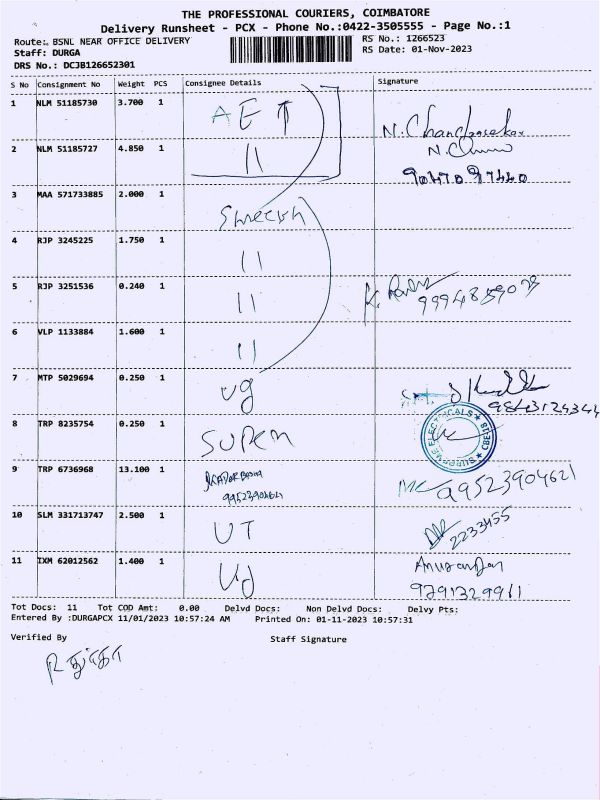 THE PROFESSIONAL COURIERS, COIMBATORE
Delivery Runsheet - PCX - Phone No.:0422-3505555 - Page No.:1
Route: BSNL NEAR OFFICE DELIVERY RS No.: 1266523
Staff: DURGA RS Date: 01-Nov-2023
DRS No.: DCJB126652301
S No Consignment No Weight PCS Consignee Details Signature
1 NLM 51185730 3.700 1 AET N. Chandrasekar
2 NLM 51185727 4.850 1 11 N. 90470 97440
3 MAA 571733885 2.000 1
4 RJP 3245225 1.750 1 11
5 RJP 3251536 0.240 1 11
6 VLP 1133884 1.600 1 11
7 MTP 5029694 0.250 1 Ug
8 TRP 8235754 0.250 1 SUPEM SUPREME ELECTRICALS CBE
9 TRP 6736968 13.100 1 99523904621 99523904621
10 SLM 331713747 2.500 1 UT 2233455
11 IXM 62012562 1.400 1 Ug 9791329961
Tot Docs: 11 Tot COD Amt: 0.00 Delvd Docs: Non Delvd Docs: Delvy Pts:
Entered By :DURGAPCX 11/01/2023 10:57:24 AM Printed On: 01-11-2023 10:57:31
Verified By Staff Signature